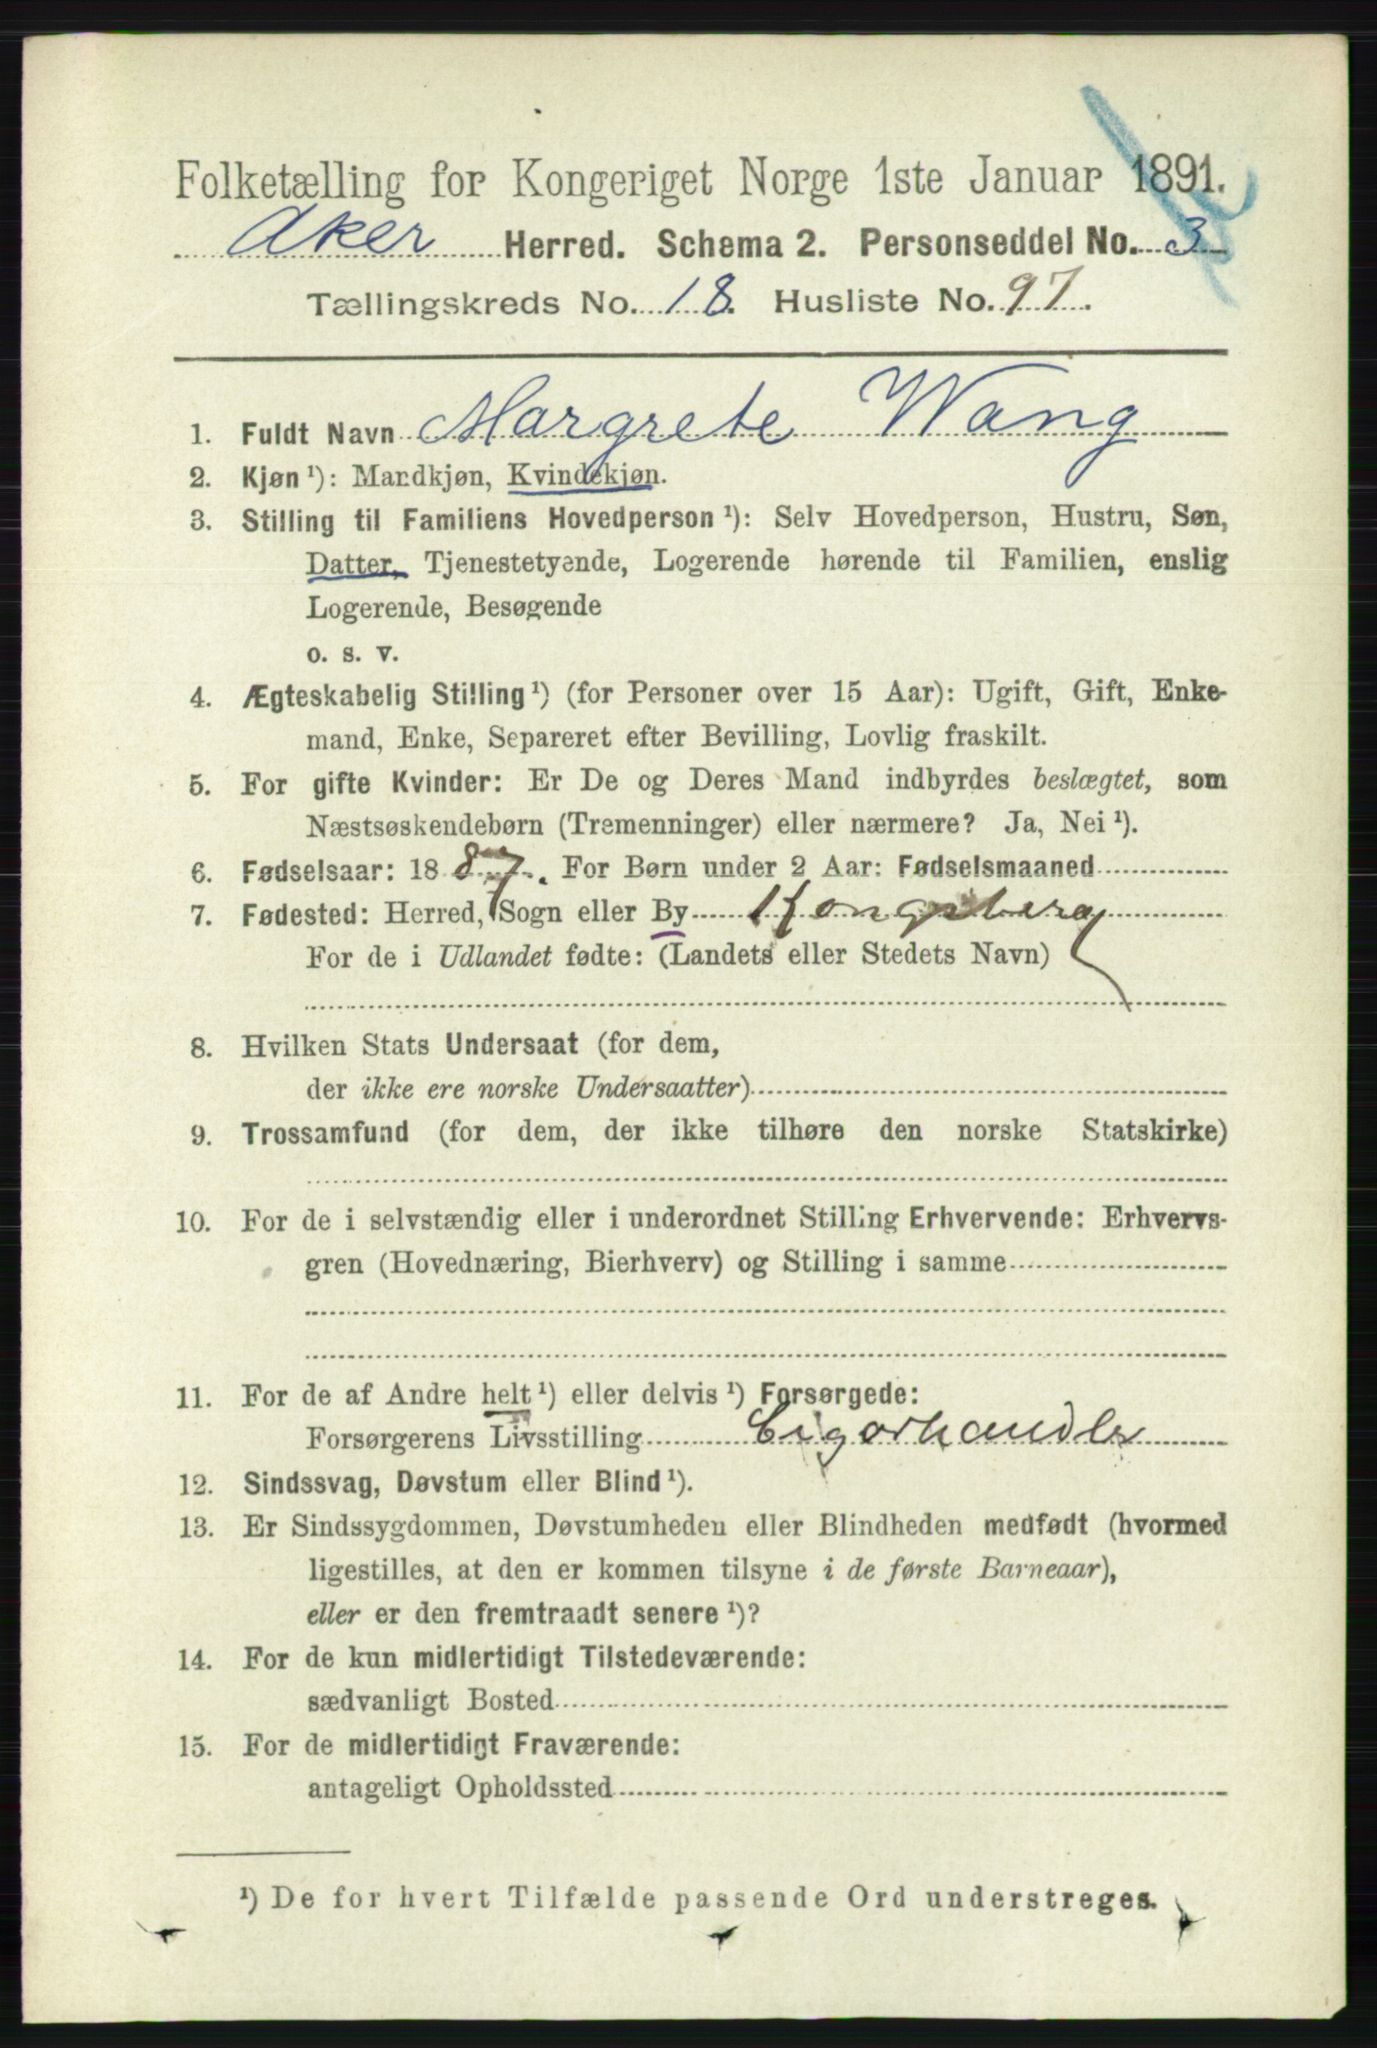 Folketælling for Kongeriget Norge 1ste Januar 1891.
Aker Herred. Schema 2. Personseddel No. 3
Tællingskreds No. 18. Husliste No. 97.
1. Fuldt Navn Margrete Wang
2. Kjøn ¹): Mandkjøn, Kvindekjøn.
3. Stilling til Familiens Hovedperson ¹): Selv Hovedperson, Hustru, Søn,
Datter, Tjenestetyende, Logerende hørende til Familien, enslig
Logerende, Besøgende
o. s. v.
4. Ægteskabelig Stilling ¹) (for Personer over 15 Aar): Ugift, Gift, Enke-
mand, Enke, Separeret efter Bevilling, Lovlig fraskilt.
5. For gifte Kvinder: Er De og Deres Mand indbyrdes beslægtet, som
Næstsøskendebørn (Tremenninger) eller nærmere? Ja, Nei ¹).
6. Fødselsaar: 1887. For Børn under 2 Aar: Fødselsmaaned
7. Fødested: Herred, Sogn eller By Kongsberg
For de i Udlandet fødte: (Landets eller Stedets Navn)
8. Hvilken Stats Undersaat (for dem,
der ikke ere norske Undersaatter)
9. Trossamfund (for dem, der ikke tilhøre den norske Statskirke)
10. For de i selvstændig eller i underordnet Stilling Erhvervende: Erhvervs-
gren (Hovednæring, Bierhverv) og Stilling i samme
11. For de af Andre helt ¹) eller delvis ¹) Forsørgede:
Forsørgerens Livsstilling Cigarhandler
12. Sindssvag, Døvstum eller Blind ¹).
13. Er Sindssygdommen, Døvstumheden eller Blindheden medfødt (hvormed
ligestilles, at den er kommen tilsyne i de første Barneaar),
eller er den fremtraadt senere ¹)?
14. For de kun midlertidigt Tilstedeværende:
sædvanligt Bosted
15. For de midlertidigt Fraværende:
antageligt Opholdssted
¹) De for hvert Tilfælde passende Ord understreges.